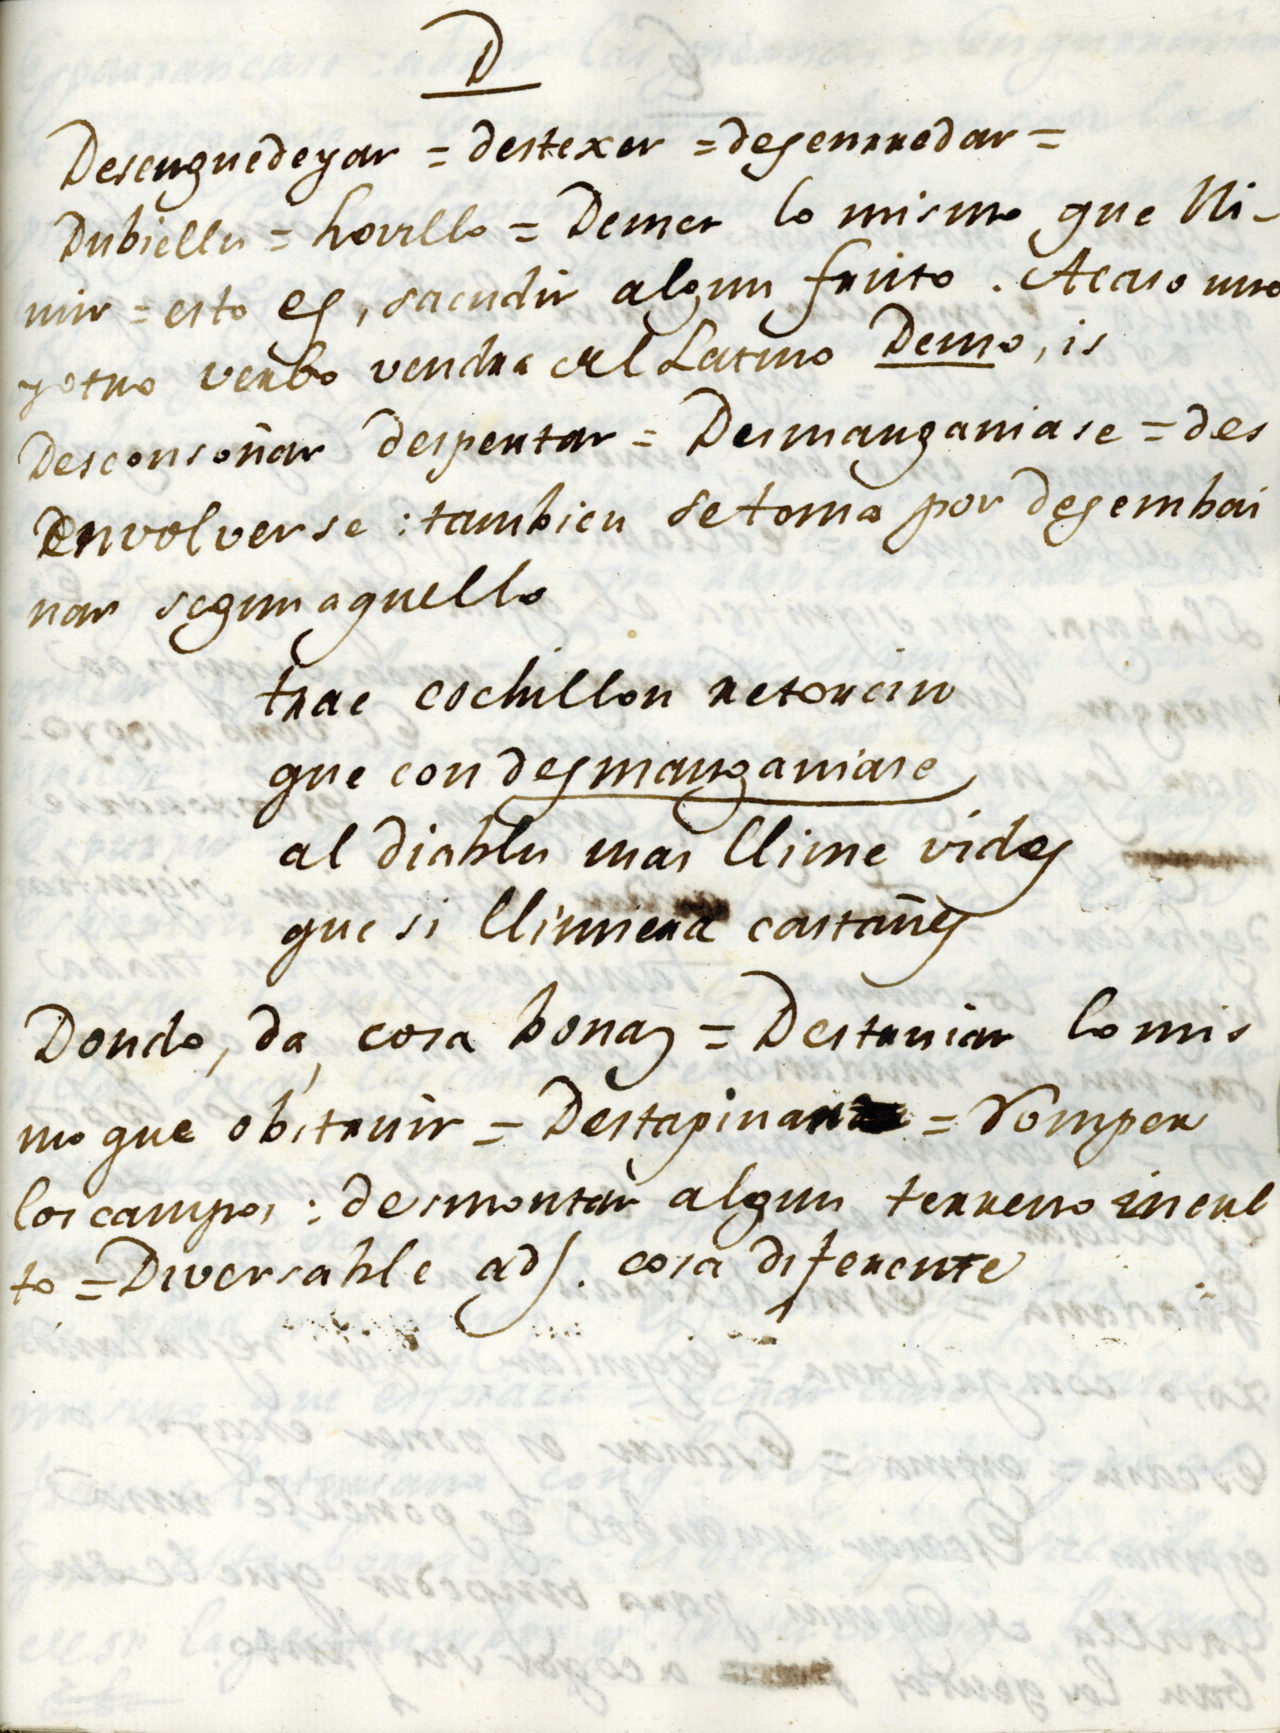 D
Desenguedeyar = destexer = desenrredar =
Dubiellu = hovillo = Demer lo mismo que Ñi-
mir = esto es, sacudir algun fruito. Acaso uno
y otro verbo vendra del Latino Demo, is
Desconsoñar despertar = Desmanganiase = des
envolverse : tambien se toma por desembai
nar segun aquello
trae cochillon retorcin
que con desmanganiase
al diablu mas llime vides
que si llimiera castañes
Dondo, da, cosa bonas = Destruiar lo mis
mo que obstruir = Destapinar = Romper
los campos : desmontar algun terreno incul
to = Diversable adj. cosa diferente